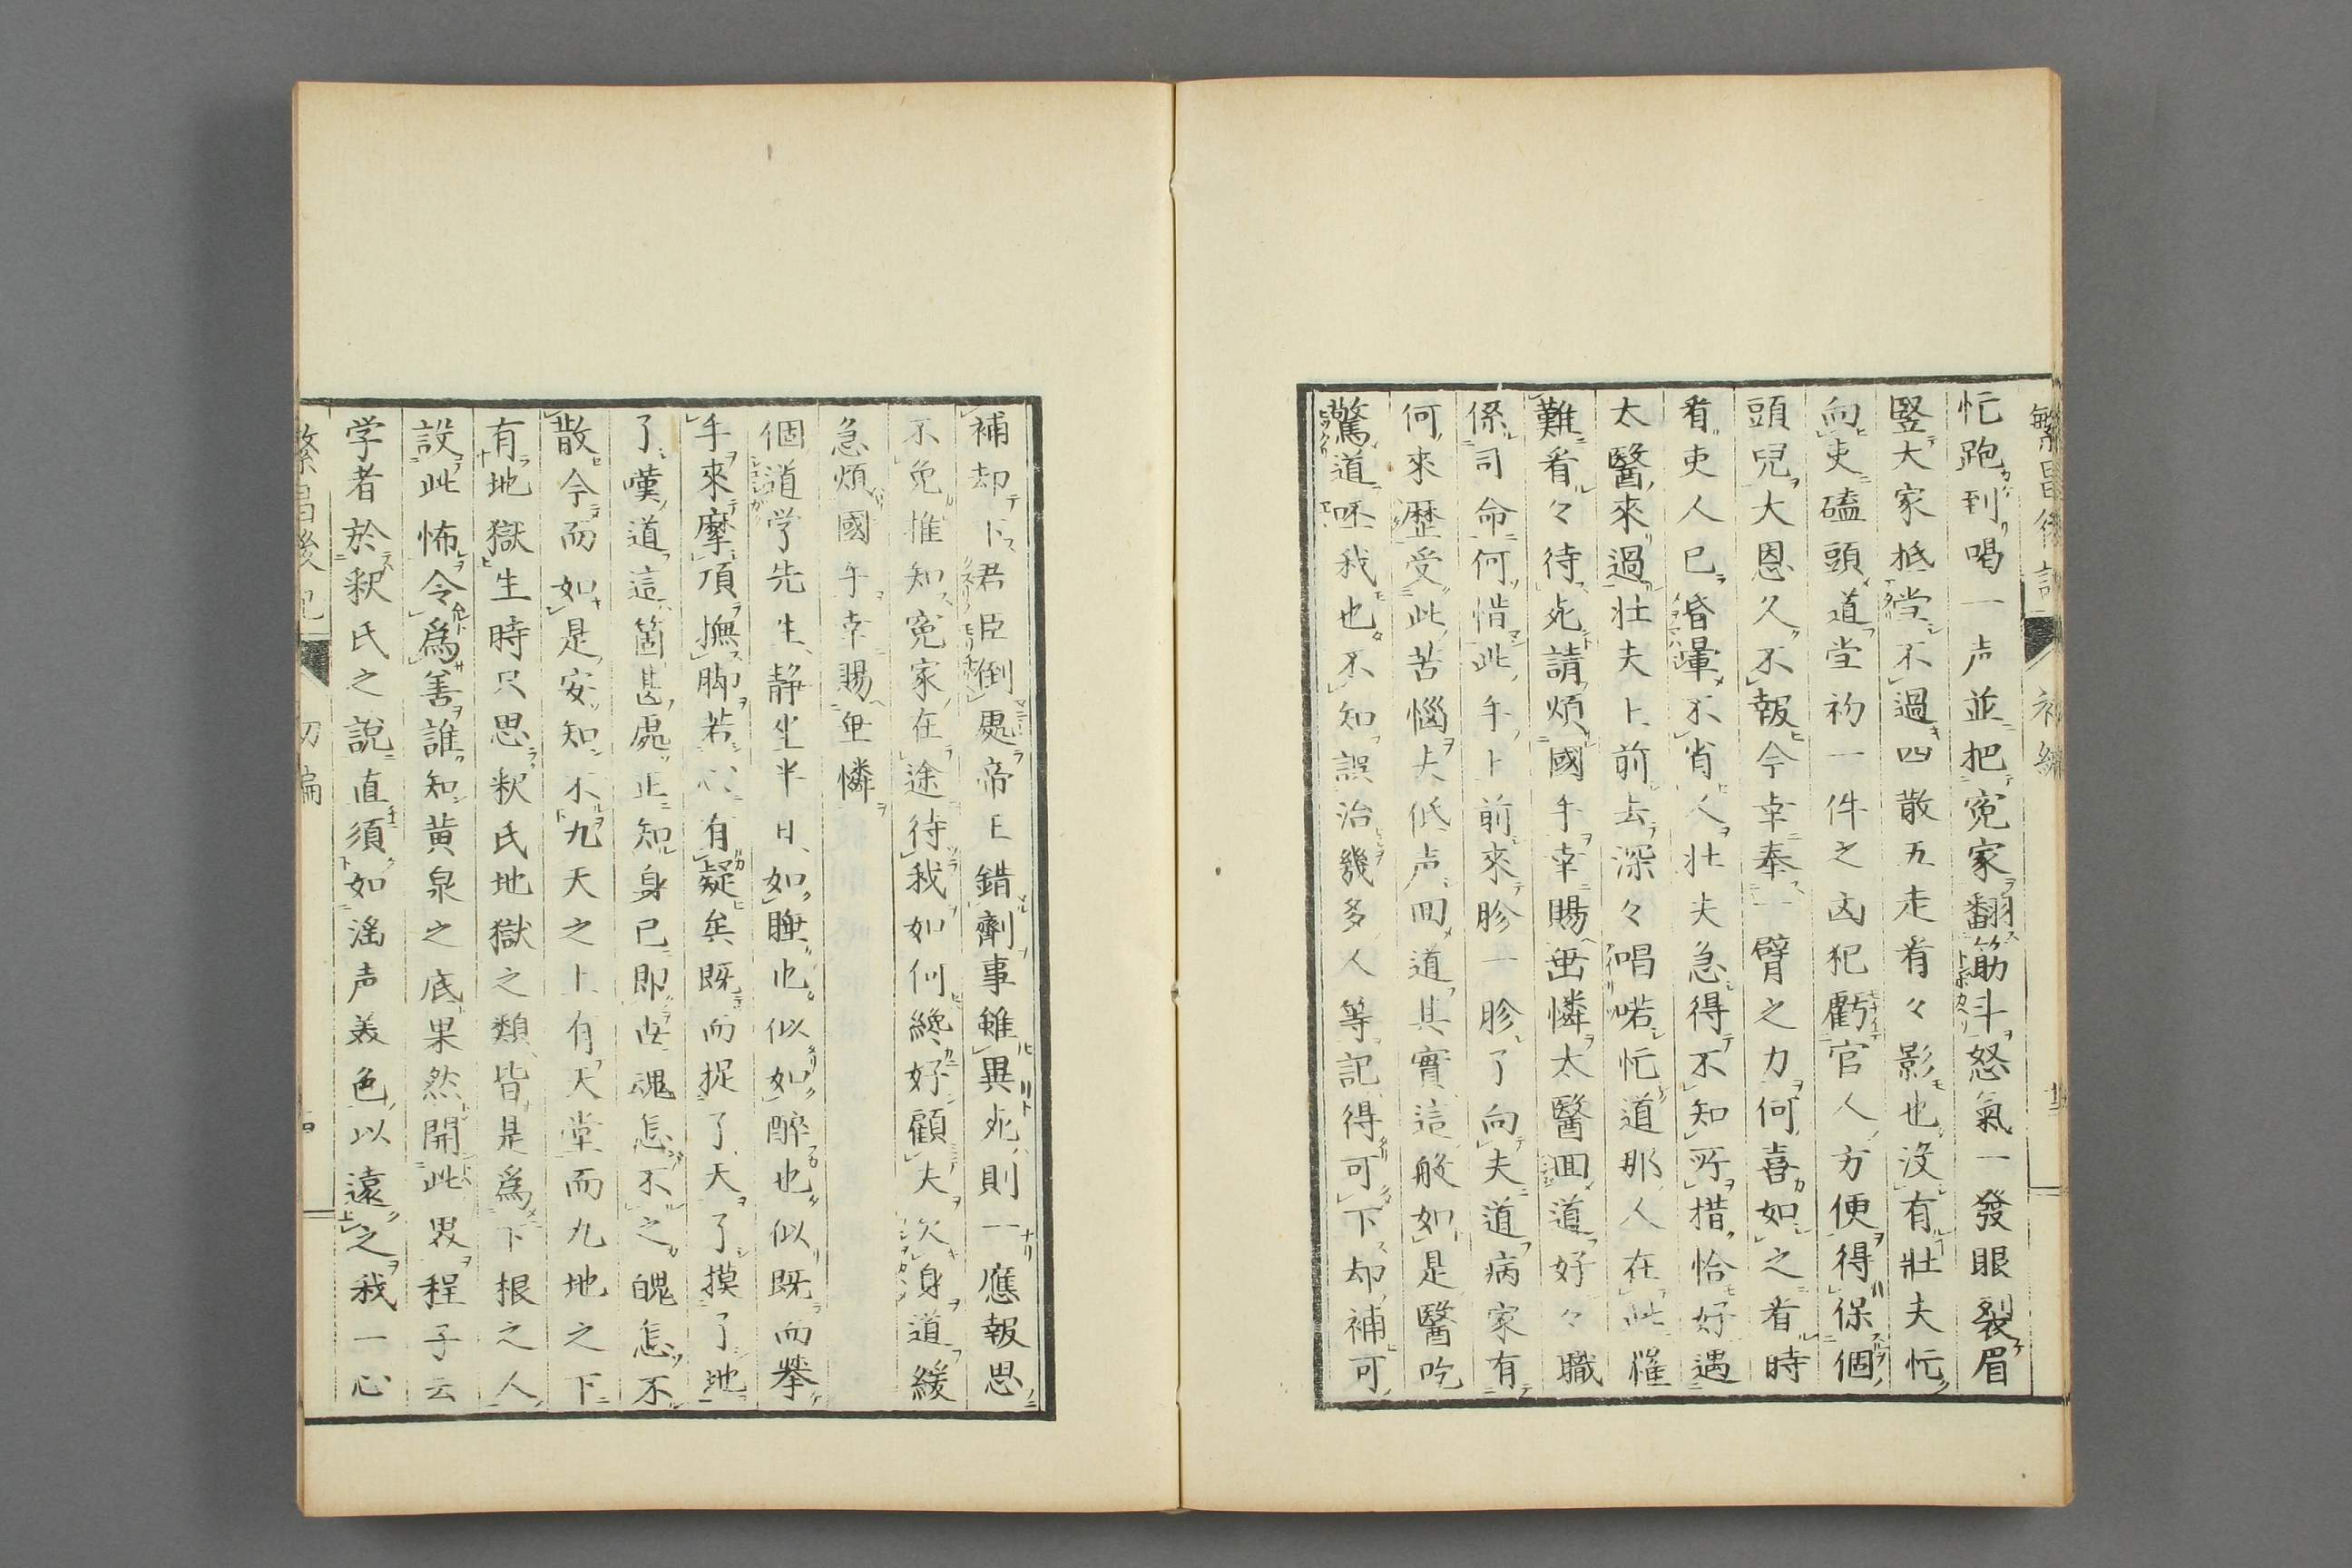 繁昌後記 初編 十三
忙跑到喝一声並把寃家翻筋斗怒氣一發眼裂眉
竪大家抵当不過四散五走看々影也沒有壮夫忙
向吏磕頭道堂初一件之凶犯虧官人方便得保個
頭児大恩久不報今幸奉一臂之力何喜如之看時
看吏人已昏暈不省人壮夫急得不知所措恰好遇
太醫來過壮夫上前去深々唱喏忙道那人在此罹
難看々待死請煩國手幸賜垂憐太醫回道好々職
係司命何惜此手上前來胗一胗了向夫道病家有
何來歴受此苦惱夫低声回道其實這般如是醫吃
驚道呸我也不知誤治幾多人等記得可下却補可
補却下君臣倒處帝王錯劑事雖異死則一應報思
不免推知寃家在途待我如何纔好顧夫欠身道緩
急煩國手幸賜垂憐
個道学先生静坐半日如睡也似如醉也似既而挙
手來摩頂撫脚若心有疑矣既而捉了天了摸了地
了嘆道這箇甚處正知身已即世魂怎不之魄怎不
散今而如是安知不九天之上有天堂而九地之下
有地獄生時只思釈氏地獄之類皆是為下根之人
設此怖令爲善誰知黄泉之底果然開此畏程子云
学者於釈氏之説直須如滛声美色以遠之我一心
繁昌後記 初編